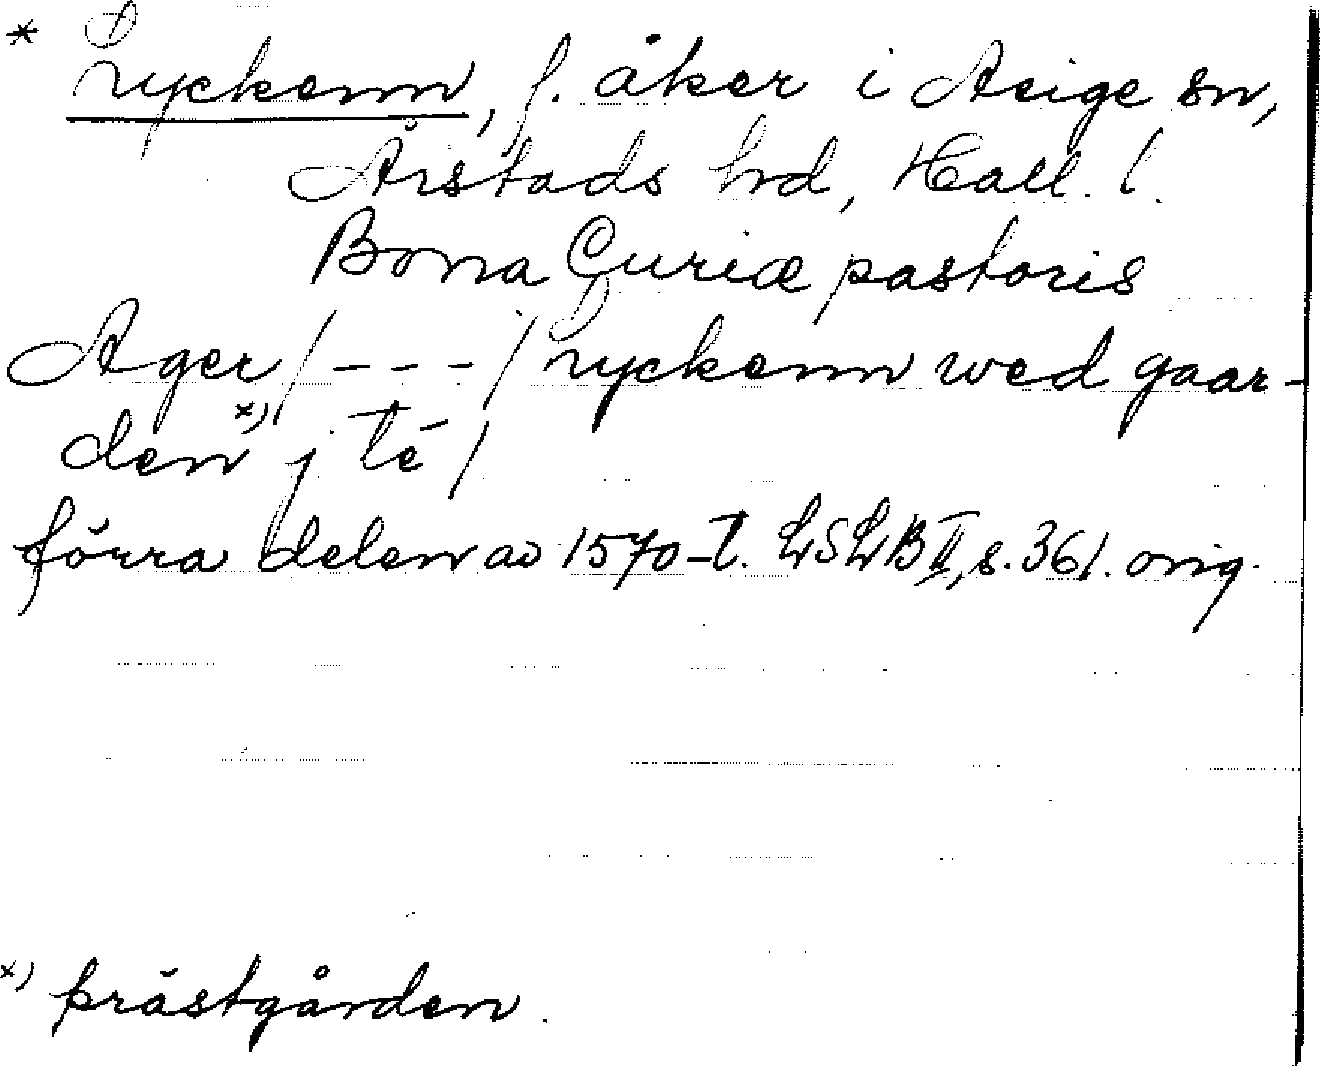 * Lyckenn, f. åker i Asige sn,
Årstads hd, Hall. l.
Bona Curiæ pastoris
Ager / - - - / lyckenn wed gaar-
den x) j té /
förra delen av 1570-t. LSLB II, s. 361. orig.
x) prästgården.